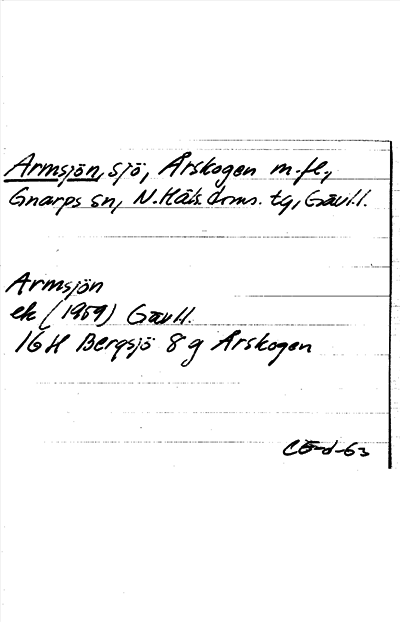 Armsjön, sjö, Årskogen m.fl.,
Gnarps sn, N.Häls. doms. tg, Gävl.l.
Armsjön
ek (1959) Gävl.l.
16H Bergsjö 8g Årskogen